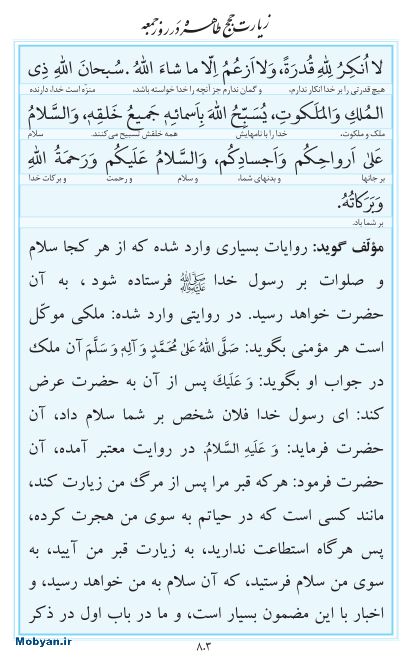 زیارت حجج طاهره در روز جمعه
لا اُنكِرُ لِلّٰهِ قُدرَةً، وَلا اَزعُمُ اِلّا ما شاءَ اللهُ. سُبحانَ اللهِ ذِی
هیچ قدرتی را بر خدا انکار ندارم، و گمان ندارم جز آنچه را خدا خواسته باشد، منزّه است خدا، دارنده
المُلكِ وَالمَلَكوتِ، يُسَبِّحُ اللهَ بِاَسمائِهِ جَميعُ خَلقِهِ، وَالسَّلامُ
ملک و ملکوت، خدا را با نامهایش همه خلقش تسبیح می‌کنند. سلام
عَلىٰ اَرواحِكُم وَاَجسادِكُم، وَالسَّلامُ عَلَيكُم وَرَحمَةُ اللهِ
بر جانها و بدنهای شما، و سلام و رحمت و برکات خدا
وَبَرَكاتُهُ.
بر شما باد.
مؤلّف گوید: روایات بسیاری وارد شده که از هر کجا سلام
و صلوات بر رسول خدا ﷺ فرستاده شود، به آن
حضرت خواهد رسید. در روایتی وارد شده: ملکی موکّل
است هر مؤمنی بگوید: صَلَّى اللهُ عَلىٰ مُحَمَّدٍ وَآلِهِ وَسَلَّمَ آن ملک
در جواب او بگوید: وَ عَلَيكَ پس از آن به حضرت عرض
کند: ای رسول خدا فلان شخص بر شما سلام داد، آن
حضرت فرماید: وَ عَلَيهِ السَّلامُ. در روایت معتبر آمده، آن
حضرت فرمود: هرکه قبر مرا پس از مرگ من زیارت کند،
مانند کسی است که در حیاتم به سوی من هجرت کرده،
پس هرگاه استطاعت ندارید، به زیارت قبر من آیید، به
سوی من سلام فرستید، که آن سلام به من خواهد رسید، و
اخبار با این مضمون بسیار است، و ما در باب اول در ذکر
۸۰۳
Mobyan.ir